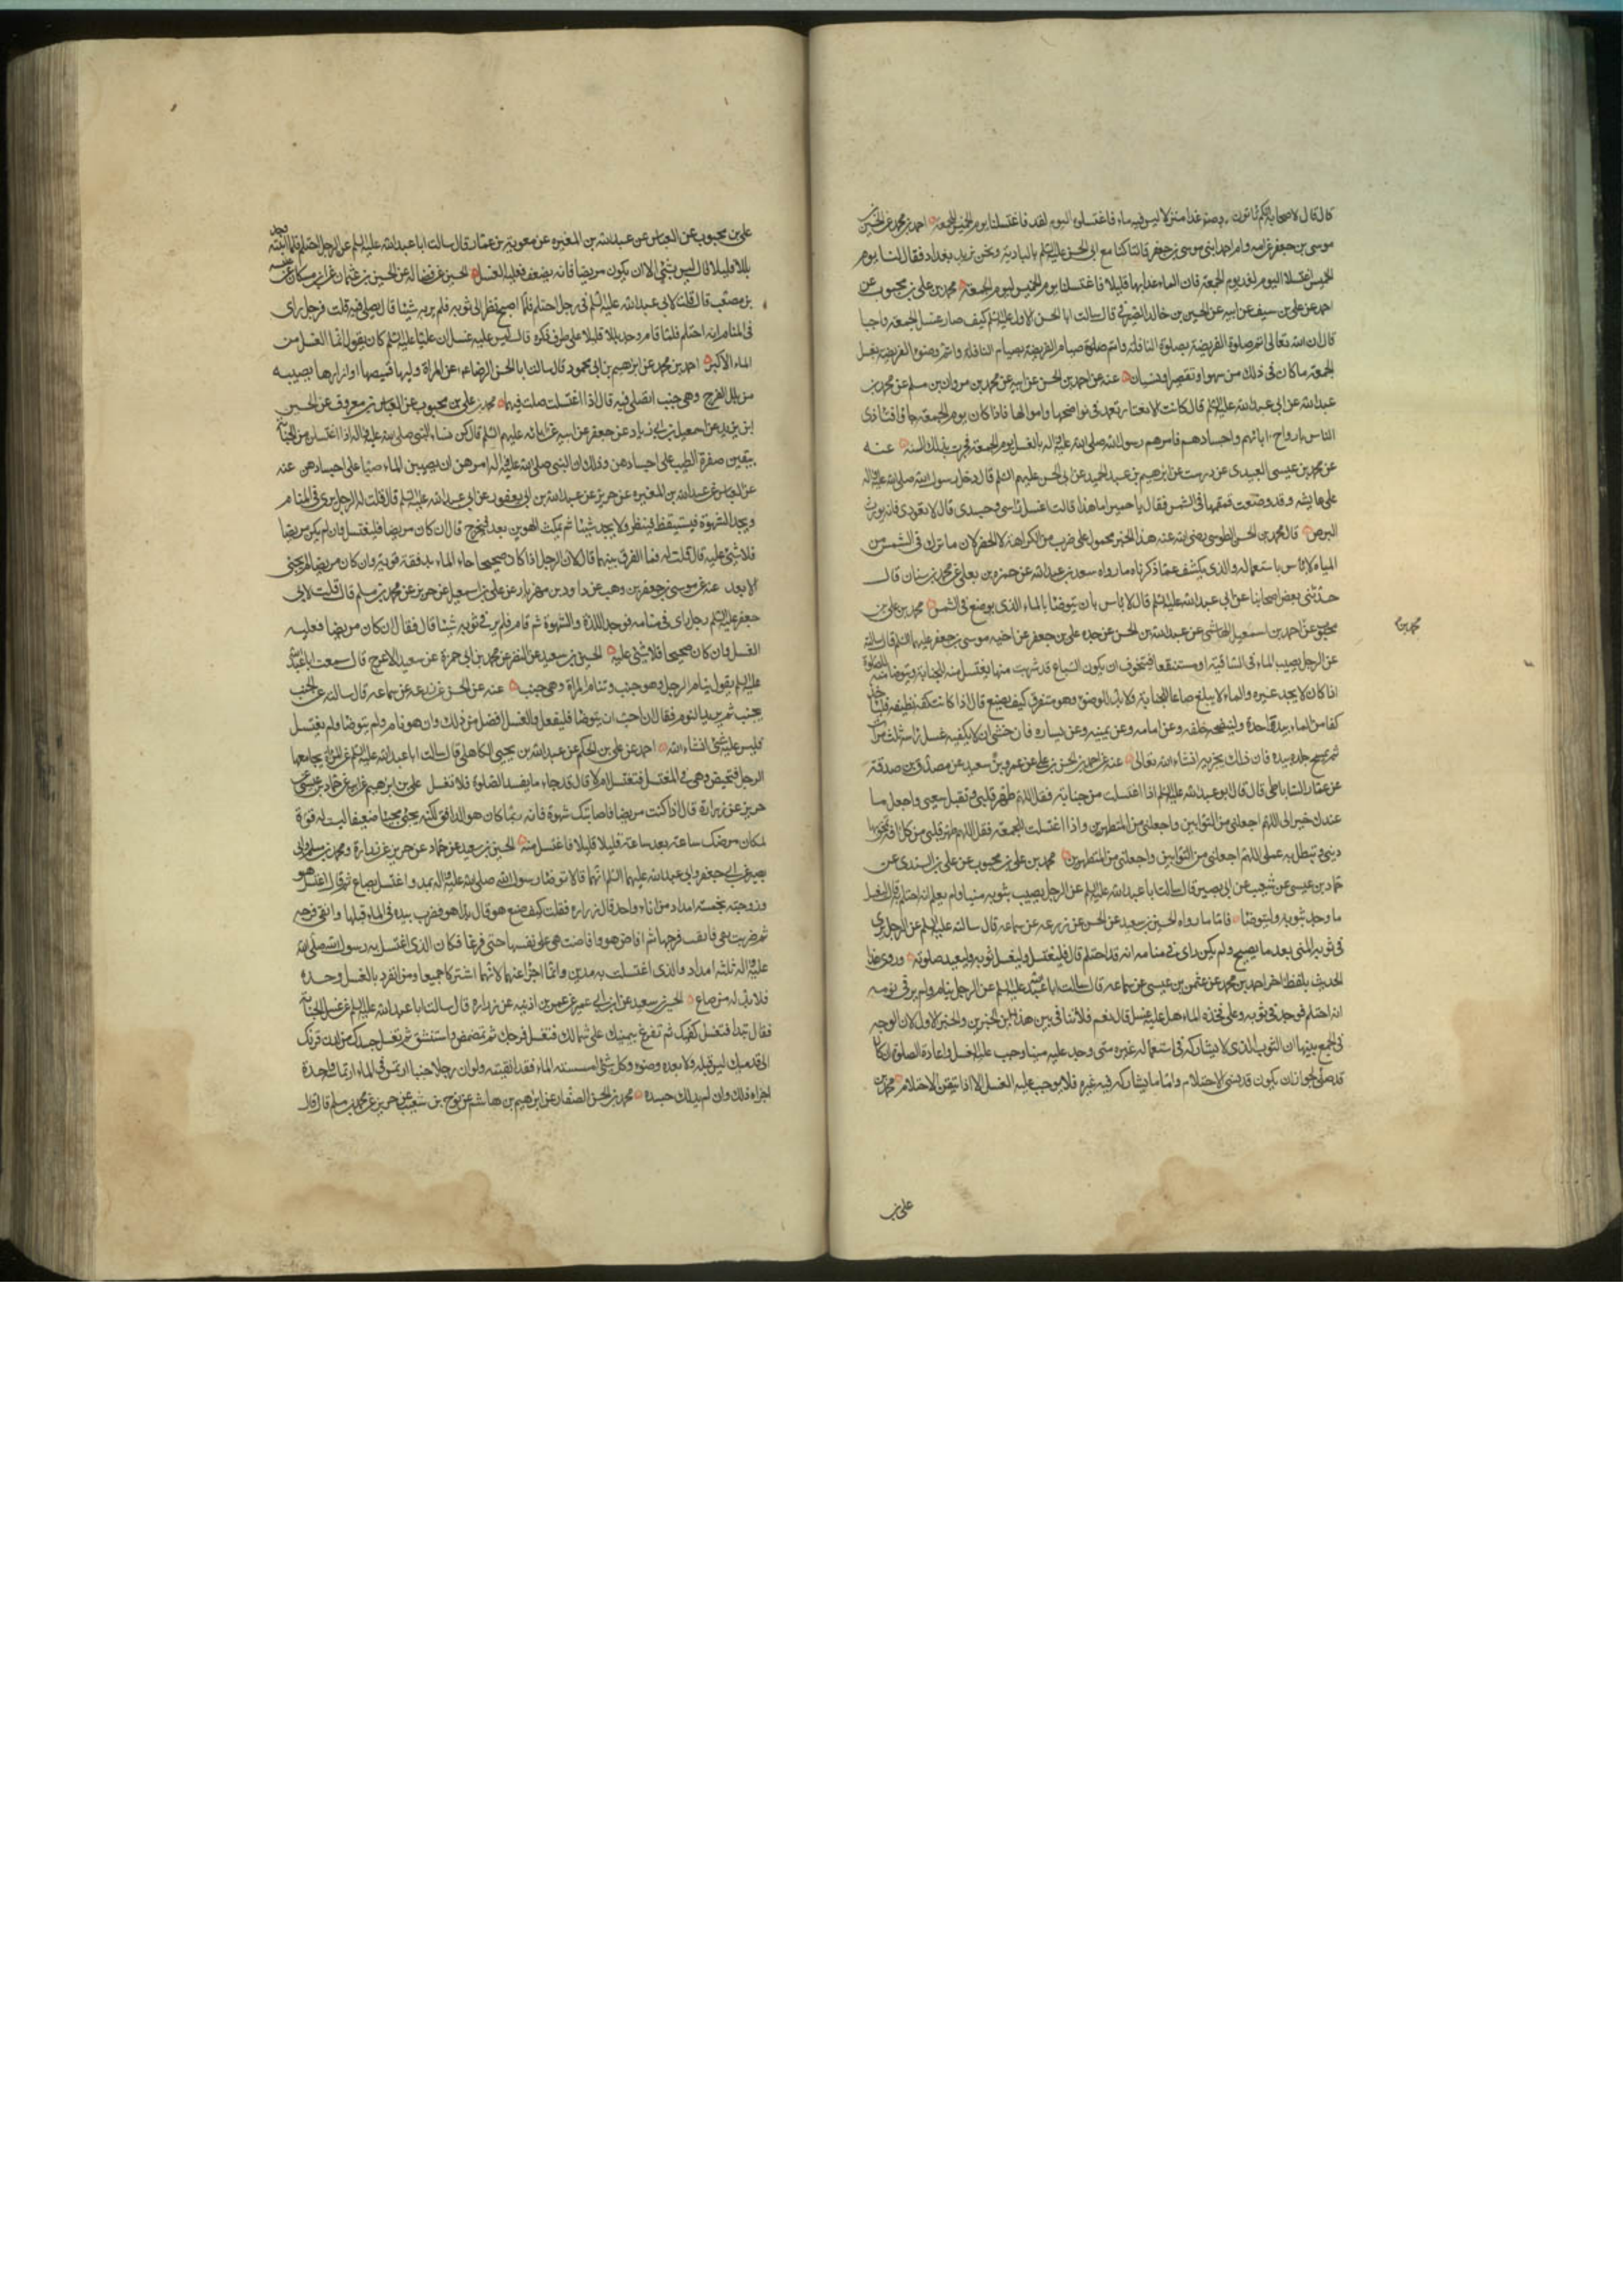 قال قال لاصحابه انكم تاتون غدا منزلا ليس فيه ماء فاغتسلوا اليوم لغد فاغتسلنا يوم الخميس للجمعة احمد بن محمد عن الحسين بن
موسى بن جعفر عن امه وام احمد ابنى موسى بن جعفر قالتا كنا مع ابى الحسن عليه السلم بالبادية ونحن نريد بغداد فقال لنا يوم
الخميس اغتسلا اليوم لغد يوم الجمعة فان الماء غدا بها قليل فاغتسلنا يوم الخميس ليوم الجمعة محمد بن على بن محبوب عن
احمد عن على بن سيف عن ابيه عن الحسين بن خالد الصيرفى قال سالت ابا الحسن الاول عليه السلم كيف صار غسل الجمعة واجبا
قال ان الله تعالى اتم صلوة الفريضة بصلوة النافلة واتم صيام الفريضة بصيام النافلة واتم وضوء الفريضة بغسل
الجمعة ما كان فى ذلك من سهو او تقصير او نسيان عنه عن احمد بن الحسن عن ابيه عن محمد بن مروان بن مسلم عن محمد بن
عبد الله عن ابى عبد الله عليه السلم قال كانت الانصار تعمل فى نواضحها واموالها فاذا كان يوم الجمعة جاؤا فتاذى
الناس بارواح اباطهم واجسادهم فامرهم رسول الله صلى الله عليه واله بالغسل يوم الجمعة فجرت بذلك السنة عنه
عن محمد بن عيسى العبيدى عن درست عن ابرهيم بن عبد الحميد عن ابى الحسن عليهم السلم قال دخل رسول الله صلى الله عليه واله
على عايشة وقد وضعت قمقمها فى الشمس فقال يا حميرا ما هذا قالت اغسل راسى وجسدى قال لا تعودى فانه يورث
البرص قال محمد بن الحسن الطوسى رضى الله عنه هذا الخبر محمول على ضرب من الكراهة لا الحظر لان ما ترك فى الشمس من
المياه لا باس باستعماله والذى يكشف عما ذكرناه ما رواه سعد بن عبد الله عن حمزة بن يعلى عن محمد بن سنان قال
حدثنى بعض اصحابنا عن ابى عبد الله عليه السلم قال لا باس بان يتوضا بالماء الذى يوضع فى الشمس محمد بن على بن
محبوب عن احمد بن اسمعيل الهاشمى عن عبد الله بن الحسن عن جده على بن جعفر عن اخيه موسى بن جعفر عليهما السلم قال سالته
عن الرجل يصيب الماء فى الساقية او مستنقعا فيتخوف ان يكون السباع قد شربت منها يغتسل منه للجنابة ويتوضا منه للصلوة
اذا كان لا يجد غيره والماء لا يبلغ صاعا للجنابة ولا مدا للوضوء وهو متفرق كيف يصنع قال اذا كانت كفه نظيفة فلياخذ
كفا من الماء بيد واحدة ولينضحه خلفه وعن امامه وعن يمينه وعن يساره فان خشى ان لا يكفيه غسل راسه ثلث مرات
ثم يمسح جلده بيده فان ذلك يجزيه انشاء الله تعالى عنه عن احمد بن الحسن بن على عن عمرو بن سعيد عن مصدق بن صدقة
عن عمار الساباطى قال قال ابو عبد الله عليه السلم اذا اغتسلت من جنابة فقل اللهم طهر قلبى وتقبل سعيى واجعل ما
عندك خيرا لى اللهم اجعلنى من التوابين واجعلنى من المتطهرين واذا اغتسلت للجمعة فقل اللهم طهر قلبى من كل افة تمحق بها
دينى وتبطل به عملى اللهم اجعلنى من التوابين واجعلنى من المتطهرين محمد بن على بن محبوب عن على بن السندى عن
حماد بن عيسى عن شعيب عن ابى بصير قال سالت ابا عبد الله عليه السلم عن الرجل يصيب بثوبه منيا ولم يعلم انه احتلم قال ليغسل
ما وجد بثوبه وليتوضا فاما ما رواه الحسين بن سعيد عن الحسن عن زرعه عن سماعه قال سالته عليه السلم عن الرجل يرى
فى ثوبه المنى بعد ما يصبح ولم يكن راى فى منامه انه قد احتلم قال فليغتسل وليغسل ثوبه وليعيد صلوته وروى هذا
الحديث بلفظ اخر احمد بن محمد عن عثمن بن عيسى عن سماعه قال سالت ابا عبد الله عليه السلم عن الرجل ينام ولم ير فى نومه
انه احتلم فوجد فى ثوبه وعلى فخذه الماء هل عليه غسل قال نعم فلا تنافى بين هذين الخبرين والخبر الاول لان الوجه
فى الجمع بينهما ان الثوب الذى لا يشاركه فى استعماله غيره متى وجد عليه منيا وجب عليه الغسل واعادة الصلوة ان كان
قد صلى لجواز ان يكون قد نسى الاحتلام واما ما يشاركه فيه غيره فلا يوجب عليه الغسل الا اذا تيقن الاحتلام محمد بن
على بن
على بن محبوب عن العباس عن عبد الله بن المغيره عن معوية بن عمار قال سالت ابا عبد الله عليه السلم عن الرجل احتلم فلما انتبه وجد
بللا قليلا قال ليس بشئ الا ان يكون مريضا فانه يضعف فعليه الغسل الحسين عن فضاله عن الحسين بن عثمان عن ابن مسكان عن عنبسه
بن مصعب قال قلت لابى عبد الله عليه السلم فى رجل احتلم فلما اصبح نظر الى ثوبه فلم ير به شيئا قال يصلى فيه قلت فرجل راى
فى المنام انه احتلم فلما قام وجد بللا قليلا على طرف ذكره قال ليس عليه غسل ان عليا عليه السلم كان يقول انما الغسل من
الماء الاكبر احمد بن محمد عن ابرهيم بن ابى محمود قال سالت ابا الحسن الرضا ع عن المراة وليها قميصها او ازارها يصيبه
من بلل الفرج وهى جنب اتصلى فيه قال اذا اغتسلت صلت فيهما محمد بن على بن محبوب عن العباس بن معروف عن الحسين
ابن يزيد عن اسمعيل بن ابى زياد عن جعفر عن ابيه عن ابائه عليهم السلم قال كن نساء النبى صلى الله عليه واله اذا اغتسلن من الجنابة
يبقين صفرة الطيب على اجسادهن وذلك ان النبى صلى الله عليه واله امرهن ان يصببن الماء صبا على اجسادهن عنه
عن العباس عن عبد الله بن المغيره عن حريز عن عبد الله بن ابى يعفور عن ابى عبد الله عليه السلم قال قلت له الرجل يرى فى المنام
ويجد الشهوة فيستيقظ فينظر ولا يجد شيئا ثم يمكث الهوين بعد فيخرج قال ان كان مريضا فليغتسل وان لم يكن مريضا
فلا شئ عليه قال قلت له فما الفرق بينهما قال لان الرجل اذا كان صحيحا جاء الماء بدفقة قوية وان كان مريضا لم يجئ
الا بعد عنه عن موسى بن جعفر بن وهب عن داود بن مهزيار عن على بن اسمعيل عن حريز عن محمد بن مسلم قال قلت لابى
جعفر عليه السلم رجل راى فى منامه فوجد اللذة والشهوة ثم قام فلم ير فى ثوبه شيئا قال فقال ان كان مريضا فعليه
الغسل وان كان صحيحا فلا شئ عليه الحسين بن سعيد عن النضر عن محمد بن ابى حمزة عن سعيد الاعرج قال سمعت ابا عبد الله
عليه السلم يقول ينام الرجل وهو جنب وتنام المراة وهى جنب عنه عن الحسن عن زرعه عن سماعه قال سالته عن الجنب
يجنب ثم يريد النوم فقال ان احب ان يتوضا فليفعل والغسل افضل من ذلك وان هو نام ولم يتوضا ولم يغتسل
فليس عليه شئ انشاء الله احمد عن على بن الحكم عن عبد الله بن يحيى الكاهلى قال سالت ابا عبد الله عليه السلم عن المراة يجامعها
الرجل فتحيض وهى فى المغتسل فتغتسل ام لا قال قد جاء ما يفسد الصلوة فلا تغتسل على بن ابرهيم عن ابيه عن حماد بن عيسى عن
حريز عن زرارة قال اذا كنت مريضا فاصابتك شهوة فانه ربما كان هو الدافق لكنه يجئ مجيئا ضعيفا ليست له قوة
لمكان مرضك ساعة بعد ساعة قليلا قليلا فاغتسل منه الحسين بن سعيد عن حماد عن حريز عن زرارة ومحمد بن مسلم وابى
بصير عن ابى جعفر وابى عبد الله عليهما السلم انهما قالا توضا رسول الله صلى الله عليه واله بمد واغتسل بصاع ثم قال اغتسل هو
وزوجته بخمسة امداد من اناء واحد قال زرارة فقلت كيف صنع هو قال بدا هو فضرب بيده فى الماء قبلها وانقى فرجه
ثم ضربت هى فانقت فرجها ثم افاض هو وافاضت هى على نفسها حتى فرغا فكان الذى اغتسل به رسول الله صلى الله
عليه واله ثلثة امداد والذى اغتسلت به مدين وانما اجزا عنهما لانهما اشتركا جميعا ومن انفرد بالغسل وحده
فلا بد له من صاع الحسين بن سعيد عن ابن ابى عمير عن عمر بن اذينه عن زرارة قال سالت ابا عبد الله عليه السلم عن غسل الجنابة
فقال تبدا فتغسل كفيك ثم تفرغ بيمينك على شمالك فتغسل فرجك ثم تمضمض واستنشق ثم تغسل جسدك من لدن قرنك
الى قدميك ليس قبله ولا بعده وضوء وكل شئ امسسته الماء فقد انقيته ولو ان رجلا جنبا ارتمس فى الماء ارتماسة واحدة
اجزاه ذلك وان لم يدلك جسده محمد بن الحسن الصفار عن ابرهيم بن هاشم عن نوح بن شعيب عن حريز عن محمد بن مسلم قال قال